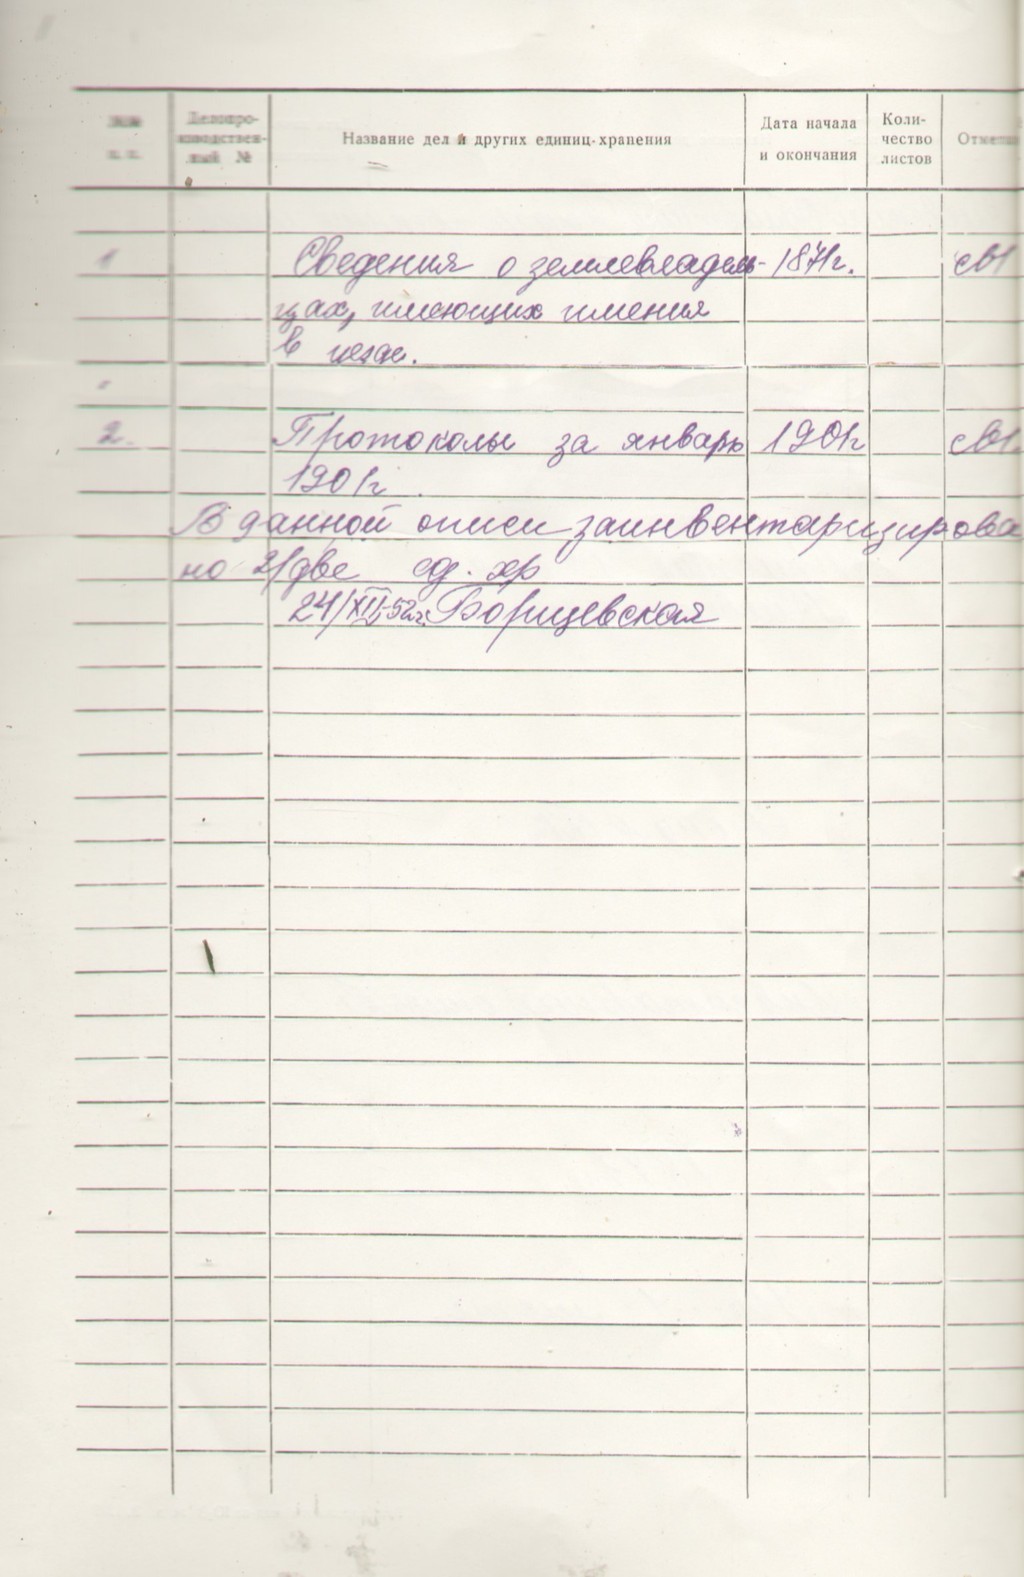 №№
п. п.
Делопро-
изводствен-
ный №
Название дел и других единиц-хранения
Дата начала
и окончания
Коли-
чество
листов
Отметки
1 Сведения о землевладель- 1871г.
цах, имеющих имения
в уезде.
2. Протоколы за январь 1901г
1901г.
В данной описи заинвентаризирова
но 2/две ед. хр
24/XII-52г. Борщевская